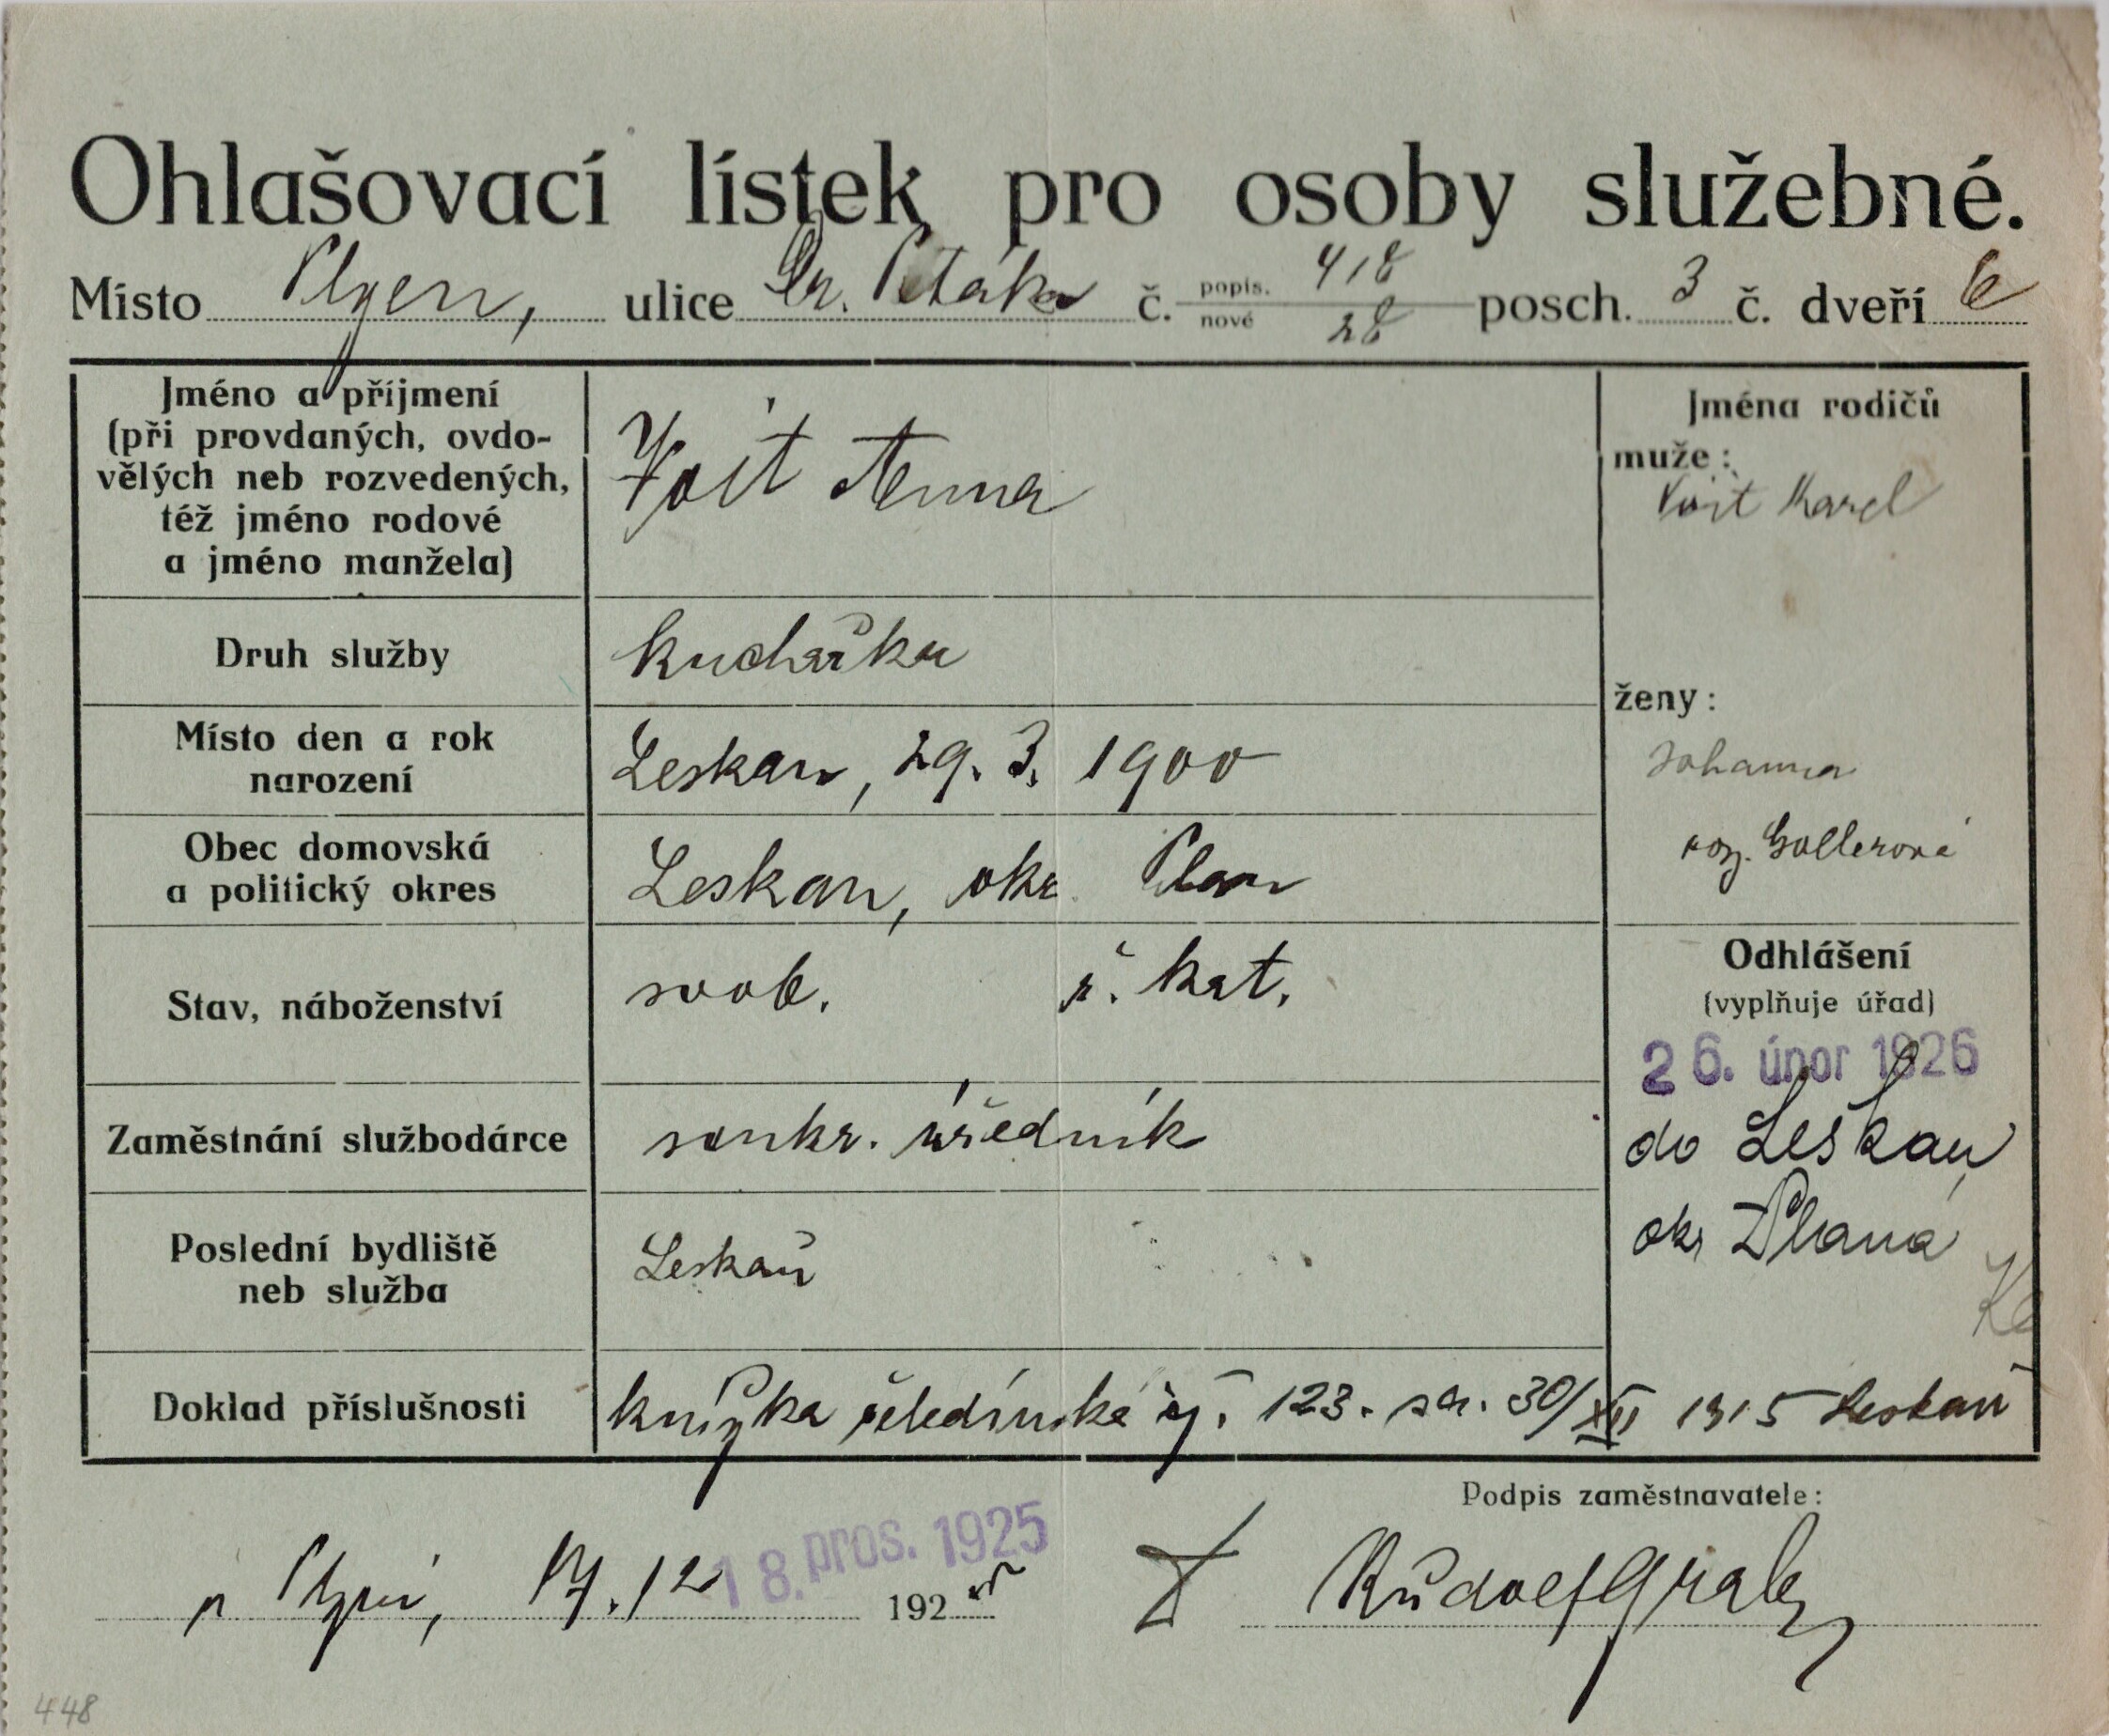 Ohlašovací lístek pro osoby služebné.
Místo Plzeň, ulice Dr. Petáka č. popis. 418 nové 28 posch. 3 č. dveří 6
Jméno a příjmení
(při provdaných, ovdo-
vělých neb rozvedených,
též jméno rodové
a jméno manžela)
Voit Anna
Jména rodičů
muže:
Voit Karel
ženy:
Johanna
roz. Gollerová
Druh služby
kuchařka
Místo den a rok
narození
Leskau, 29. 3. 1900
Obec domovská
a politický okres
Leskau, okr. Plan
Stav, náboženství
svob. ř. kat.
Zaměstnání službodárce
soukr. úředník
Poslední bydliště
neb služba
Leskaŭ
Odhlášení
(vyplňuje úřad)
26. únor 1926
do Leskau,
okr Planá
Doklad příslušnosti
knížka čeledínská čj. 123. 30/XII 1915 Leskaŭ
Podpis zaměstnavatele:
v Plzni, 17. 12 1925
18. pros. 1925
Rudolf
448